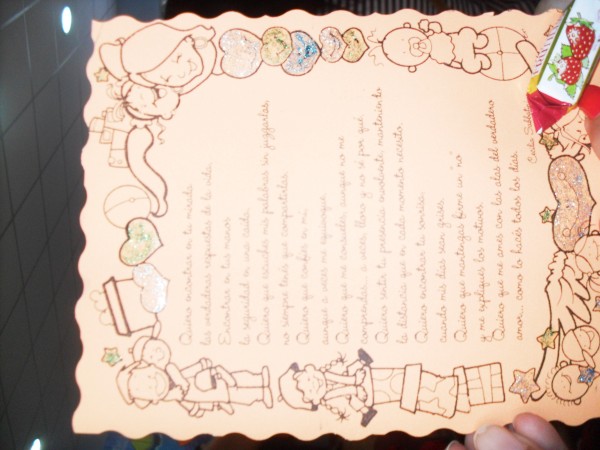 Quiero encontrar en tu mirada
las verdaderas respuestas de la vida.
Encontrar en tus manos
la seguridad en una caída.
Quiero que escuches mis palabras sin juzgarlas
no siempre tenés que compartirlas
Quiero que confíes en mí,
aunque a veces me equivoque
Quiero que me consueles, aunque no me
comprendas... a veces lloro y no sé por qué
Quiero sentir tu presencia invisiblemente manteniendo
la distancia que en cada momento necesito.
Quiero encontrar tu sonrisa
cuando mis días sean grises.
Quiero que mantengas firme un "no"
y me expliques los motivos.
Quiero que me ames con las alas del verdadero
amor... como lo hacés todos los días.